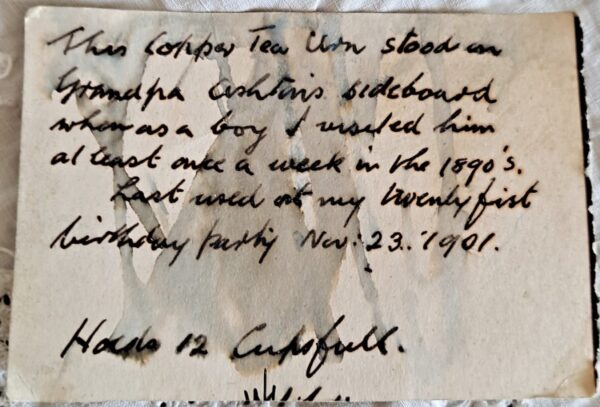 This Copper Tea Urn stood on
Grandpa Ashton's sideboard
when as a boy I visited him
at least once a week in the 1890's.
Last used at my twentyfirst
birthday party Nov: 23. 1901.
Holds 12 Cupsfull.